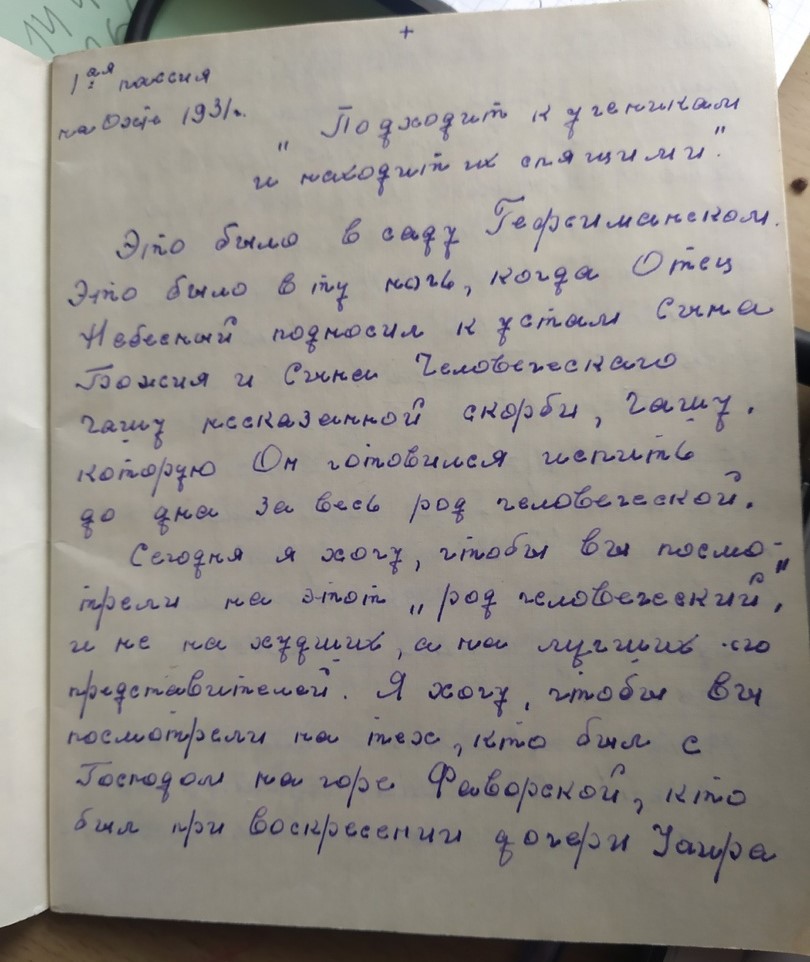 +
1ая пассия
на Охте 1931г.
"Подходит к ученикам
и находит их спящими".
Это было в саду Гефсиманском.
Это было в ту ночь, когда Отец
Небесный подносил к устам Сына
Божия и Сына Человеческаго
чашу несказанной скорби, чашу,
которую Он готовился испить
до дна за весь род человеческой.
Сегодня я хочу, чтобы вы посмо-
трели на этот „род человеческий",
и не на худших, а на лучших его
представителей. Я хочу, чтобы вы
посмотрели на тех, кто был с
Господом на горе Фаворской, кто
был при воскресении дочери Иаира